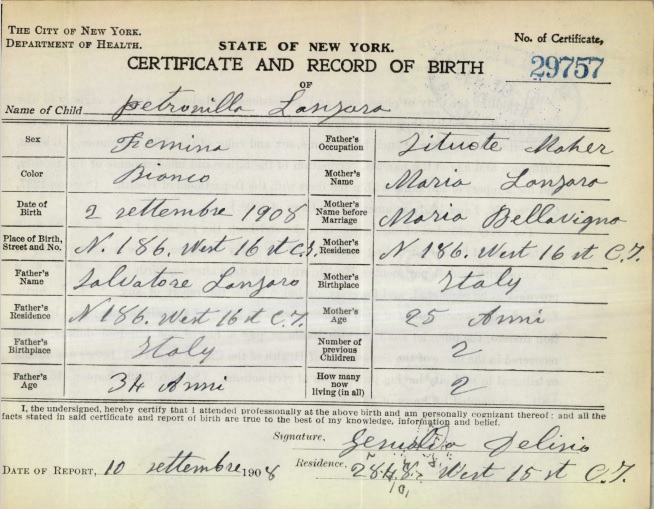 THE CITY OF NEW YORK.
DEPARTMENT OF HEALTH.
STATE OF NEW YORK.
No. of Certificate,
CERTIFICATE AND RECORD OF BIRTH
29757
OF
Name of Child Petronilla Lanzara
Sex Femina
Father's Occupation
Color Bianco
Mother's Name Maria Lanzara
Date of Birth 2 settembre 1908
Mother's Name before Marriage Maria Bellavigna
Place of Birth, Street and No. N. 186. West 16 st
Mother's Residence N 186. West 16 st C.
Father's Name Salvatore Lanzaro
Mother's Birthplace Italy
Father's Residence N 186. West 16 st C.
Mother's Age 25 Anni
Father's Birthplace Italy
Number of previous Children 2
Father's Age 34 Anni
How many now living (in all) 2
I, the undersigned, hereby certify that I attended professionally at the above birth and am personally cognizant thereof; and all the
facts stated in said certificate and report of birth are true to the best of my knowledge, information and belief.
Signature,
DATE OF REPORT, 10 settembre 1908
Residence, West 15 st C.